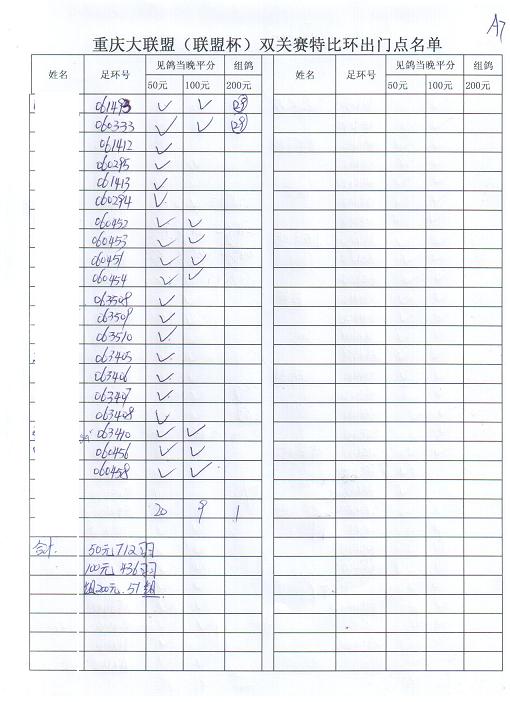 A7
重庆大联盟（联盟杯）双关赛特比环出门点名单
姓名 足环号 见鸽当晚平分 组鸽 姓名 足环号 见鸽当晚平分 组鸽
50元 100元 200元 50元 100元 200元
061493 ✓ ✓
060333 ✓ ✓
061412 ✓
060295 ✓
061413 ✓
060294 ✓
060452 ✓ ✓
060453 ✓ ✓
060451 ✓ ✓
060454 ✓ ✓
063508 ✓
063509 ✓
063510 ✓
063405 ✓
063406 ✓
063407 ✓
063408 ✓
063410 ✓ ✓
060456 ✓ ✓
060458 ✓ ✓
20 9 1
合计. 50元 712羽
100元 436羽
组200元. 51组